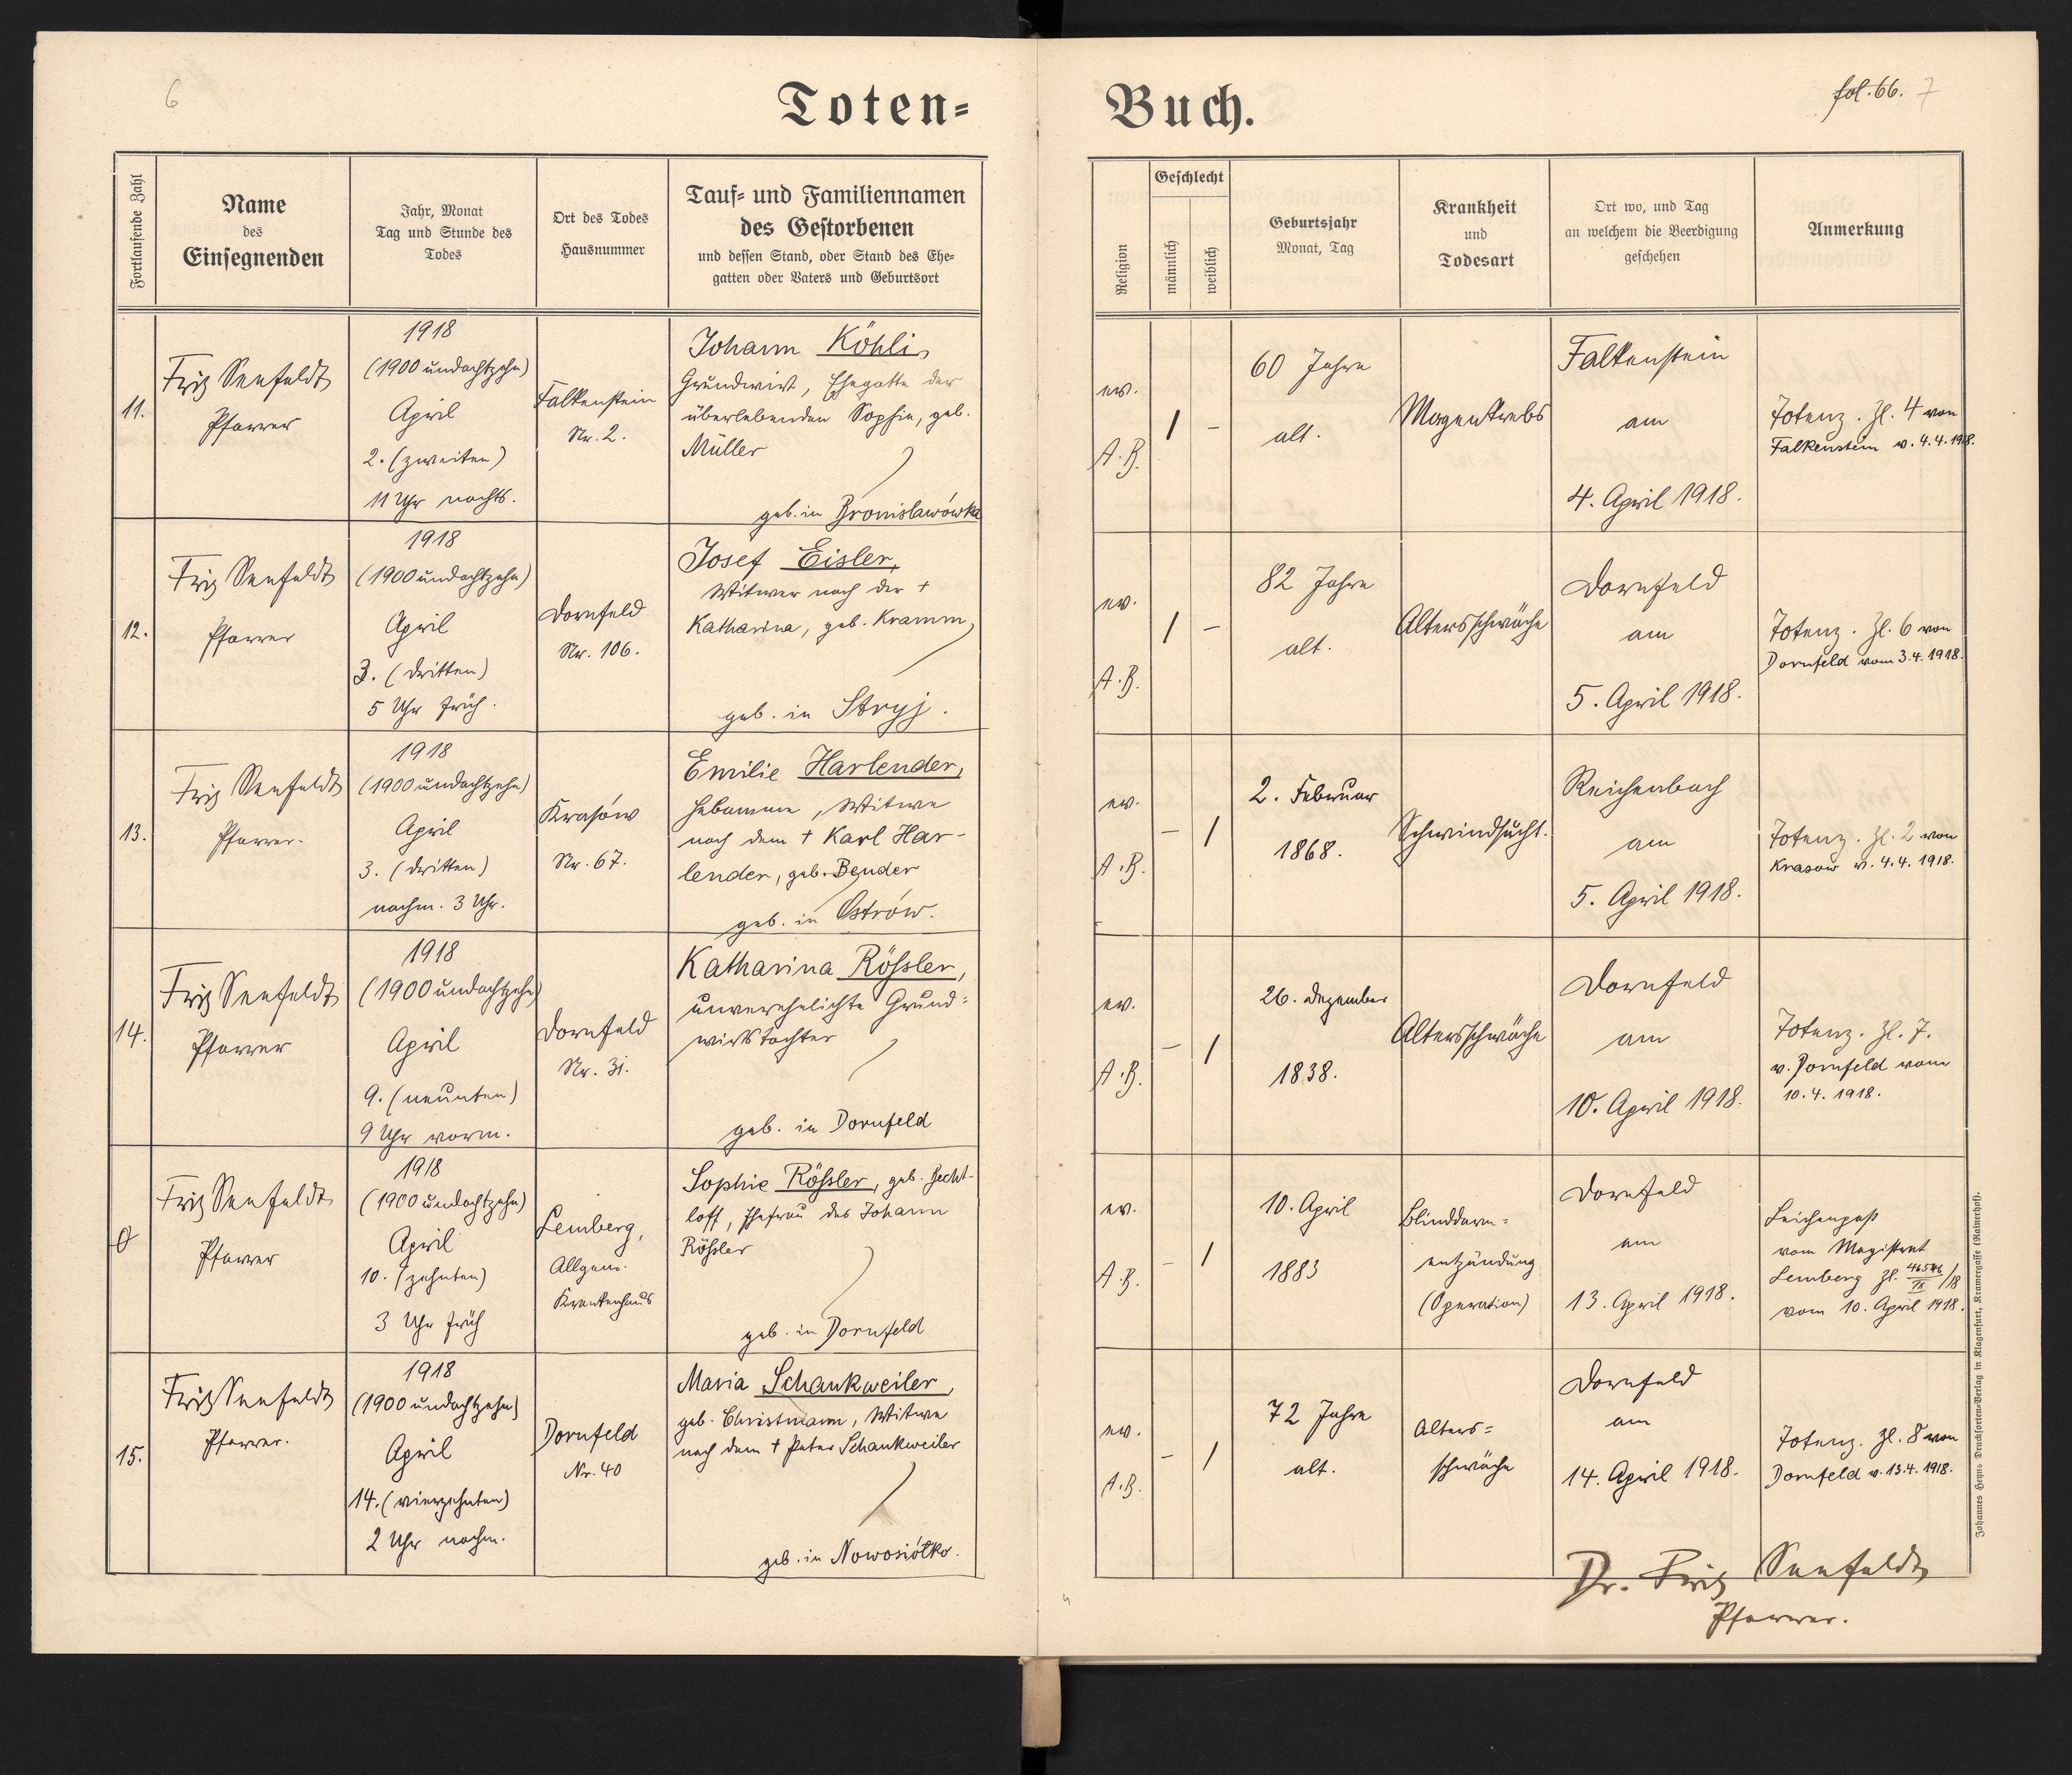 6
Toten=
Buch.
fol. 66. 7
Fortlaufende Zahl
Name
des
Einsegnenden
Jahr, Monat
Tag und Stunde des
Todes
Ort des Todes
Hausnummer
Tauf= und Familiennamen
des Gestorbenen
und dessen Stand, oder Stand des Ehe=
gatten oder Vaters und Geburtsort
Religion
Geschlecht
männlich
weiblich
Geburtsjahr
Monat, Tag
Krankheit
und
Todesart
Ort wo, und Tag
an welchem die Beerdigung
geschehen
Anmerkung
11.
Fritz Seefeldt
Pfarrer
1918
(1900 undachtzehn)
April
2. (zweiten)
11 Uhr nachts.
Falkenstein
Nr. 2.
Johann Köhli,
Grundwirt, Ehegatte der
überlebenden Sophie, geb.
Müller
geb. in Bronisławówka
ev.
A. B.
1 –
60 Jahre
alt.
Magenkrebs
Falkenstein
am
4. April 1918.
Totenz. Zl. 4 von
Falkenstein v. 4.4.1918.
12.
Fritz Seefeldt
Pfarrer
1918
(1900 undachtzehn)
April
3. (dritten)
5 Uhr früh.
Dornfeld
Nr. 106.
Josef Eisler,
Witwer nach der †
Katharina, geb. Kramm,
geb. in Stryj.
ev.
A. B.
1 –
82 Jahre
alt.
Altersschwäche
Dornfeld
am
5. April 1918.
Totenz. Zl. 6 von
Dornfeld vom 3.4.1918.
13.
Fritz Seefeldt
Pfarrer.
1918
(1900 undachtzehn)
April
3. (dritten)
nachm. 3 Uhr.
Krasów
Nr. 67.
Emilie Harlender,
Hebamme, Witwe
nach dem † Karl Har-
lender, geb. Bender
geb. in Ostrów.
ev.
A. B.
– 1
2. Februar
1868.
Schwindsucht.
Reichenbach
am
5. April 1918.
Totenz. Zl. 2 von
Krasow v. 4.4.1918.
14.
Fritz Seefeldt
Pfarrer
1918
(1900 undachtzehn)
April
9. (neunten)
9 Uhr vorm.
Dornfeld
Nr. 31.
Katharina Rößler,
unverehelichte Grund=
wirtstochter
geb. in Dornfeld
ev.
A. B.
– 1
26. Dezember
1838.
Altersschwäche
Dornfeld
am
10. April 1918.
Totenz. Zl. 7.
v. Dornfeld vom
10.4.1918.
Fritz Seefeldt
Pfarrer
1918
(1900 undachtzehn)
April
10. (zehnten)
3 Uhr früh
Lemberg,
Allgem.
Krankenhaus
Sophie Rößler, geb. Becht-
loff, Ehefrau des Johann
Rößler
geb. in Dornfeld
ev.
A. B.
– 1
10. April
1883
Blinddarm=
entzündung
(Operation)
Dornfeld
am
13. April 1918.
Leichenpaß
vom Magistrat
Lemberg Zl. 46546/IX/18
vom 10. April 1918.
15.
Fritz Seefeldt
Pfarrer.
1918
(1900 undachtzehn)
April
14. (vierzehnten)
2 Uhr nachm.
Dornfeld
Nr. 40
Maria Schankweiler,
geb. Christmann, Witwe
nach dem † Peter Schankweiler
geb. in Nowosiółko.
ev.
A. B.
– 1
72 Jahre
alt.
Alters=
schwäche
Dornfeld
am
14. April 1918.
Totenz. Zl. 8 von
Dornfeld v. 13.4.1918.
Dr. Fritz Seefeldt
Pfarrer.
Johannes Heyns Drucksorten=Verlag in Klagenfurt, Kramergasse (Rainerhof).